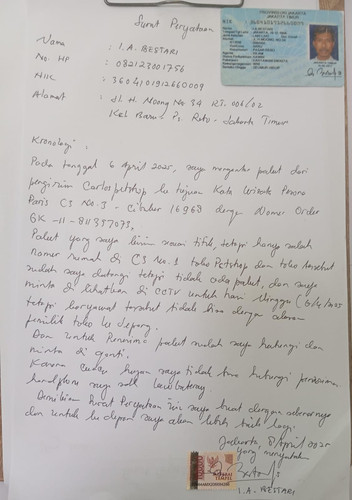 Surat Pernyataan
Nama : I.A. BESTARI
No. HP : 082123001756
NIK : 3604101912660009
Alamat : Jl. H. No 34 RT. 006/02
Kel. Ps. Rebo - Jakarta Timur
Kronologi,
Pada tanggal 6 April 2025, saya mengantar paket dari
pengirim Carlospetshop ke tujuan Kota Wisata Pesona
Paris C3 No. 3 - Cibubur 16968 dengan Nomer Order
GK - 11 -
Paket yang saya kirim sesuai titik, tetapi hanya salah
nomer rumah di C3 No. 1 toko Petshop dan toko tersebut
sudah saya datangi tetapi tidak ada paket, dan saya
minta di lihatkan di CCTV untuk hari Minggu (6/4/2025
tetapi karyawat tersebut tidak bisa dengan alasan
pemilik toko ke Jepang.
Dan untuk Penerima paket sudah saya hubungi dan
minta di ganti.
Karena cuaca hujan saya tidak bisa hubungi penerima
handphone saya
Demikian Surat Pernyataan ini saya buat dengan sebenarnya
dan untuk ke depan saya akan lebih baik lagi.
Jakarta, 8 April 2025
Yang menyatakan
I.A. BESTARI